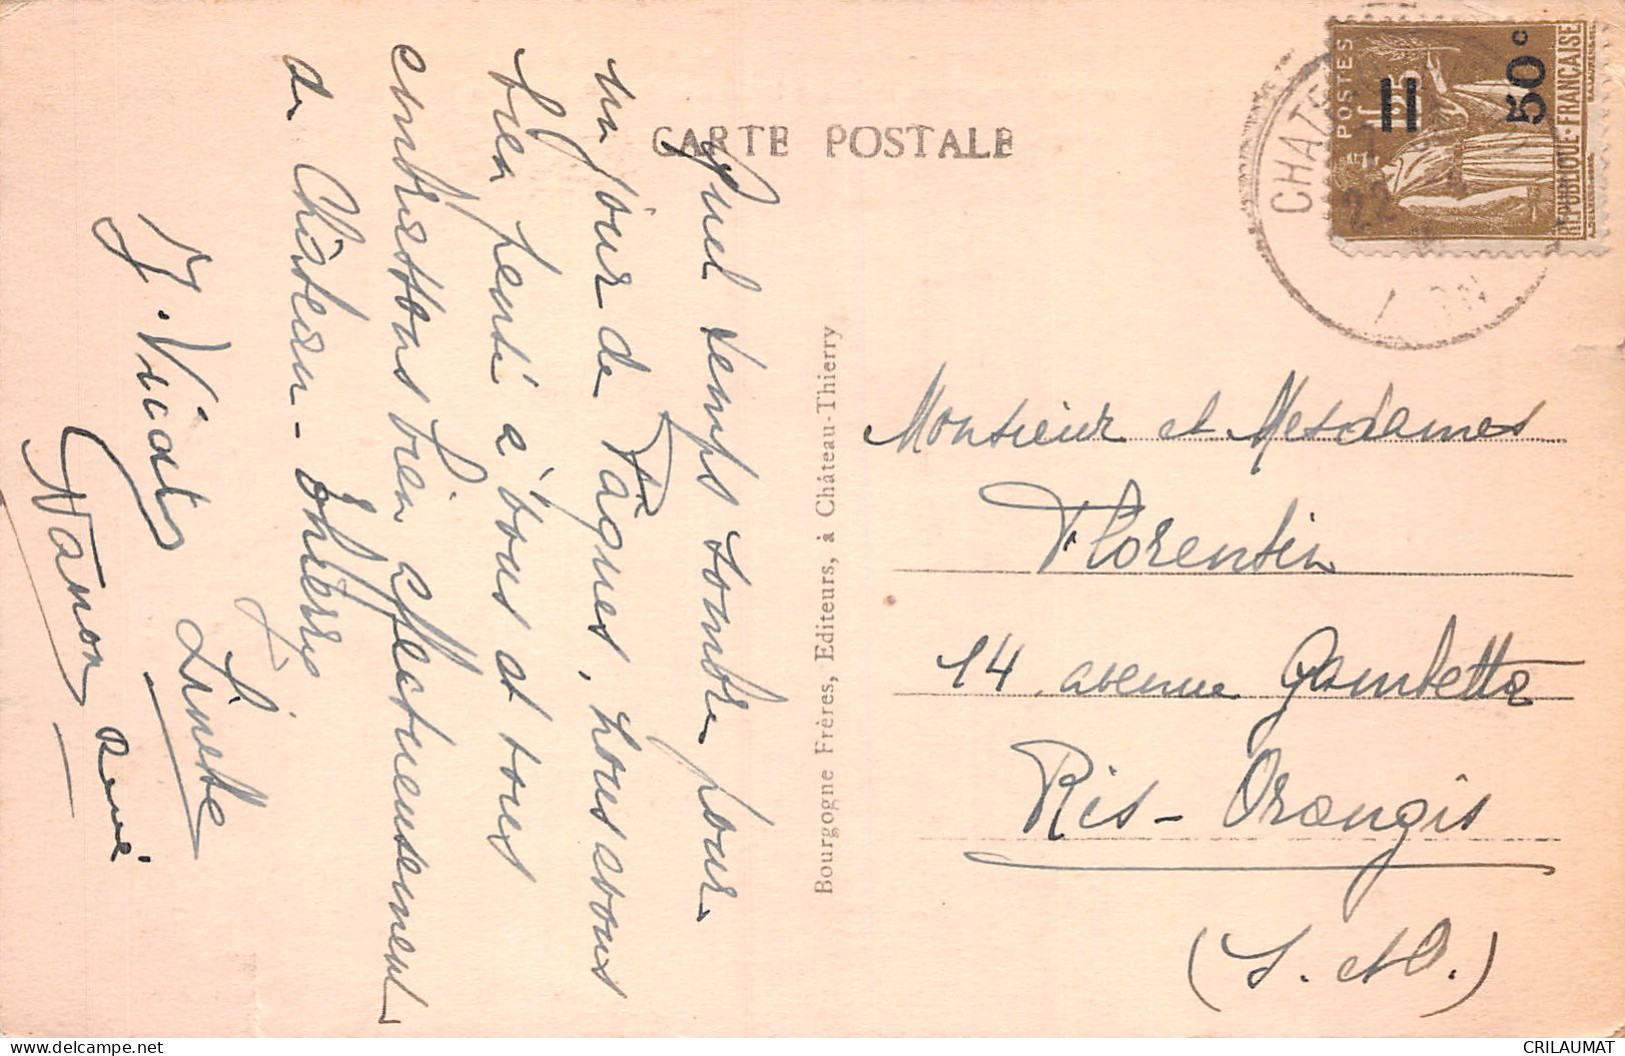 CARTE POSTALE
Quel temps sombre pour
un jour de Pâques, nous avons
bien pensé à vous et vous
embrassons bien affectueusement
de Château-Thierry
J. Vicat
Linette
Nanon
René
Bourgogne Frères, Editeurs, à Château-Thierry
POSTES
50c
REPUBLIQUE FRANÇAISE
CHATE
22
Monsieur et Mesdames
Florentin
14 avenue Gambetta
Ris-Orangis
(S. et O.)
CRILAUMAT